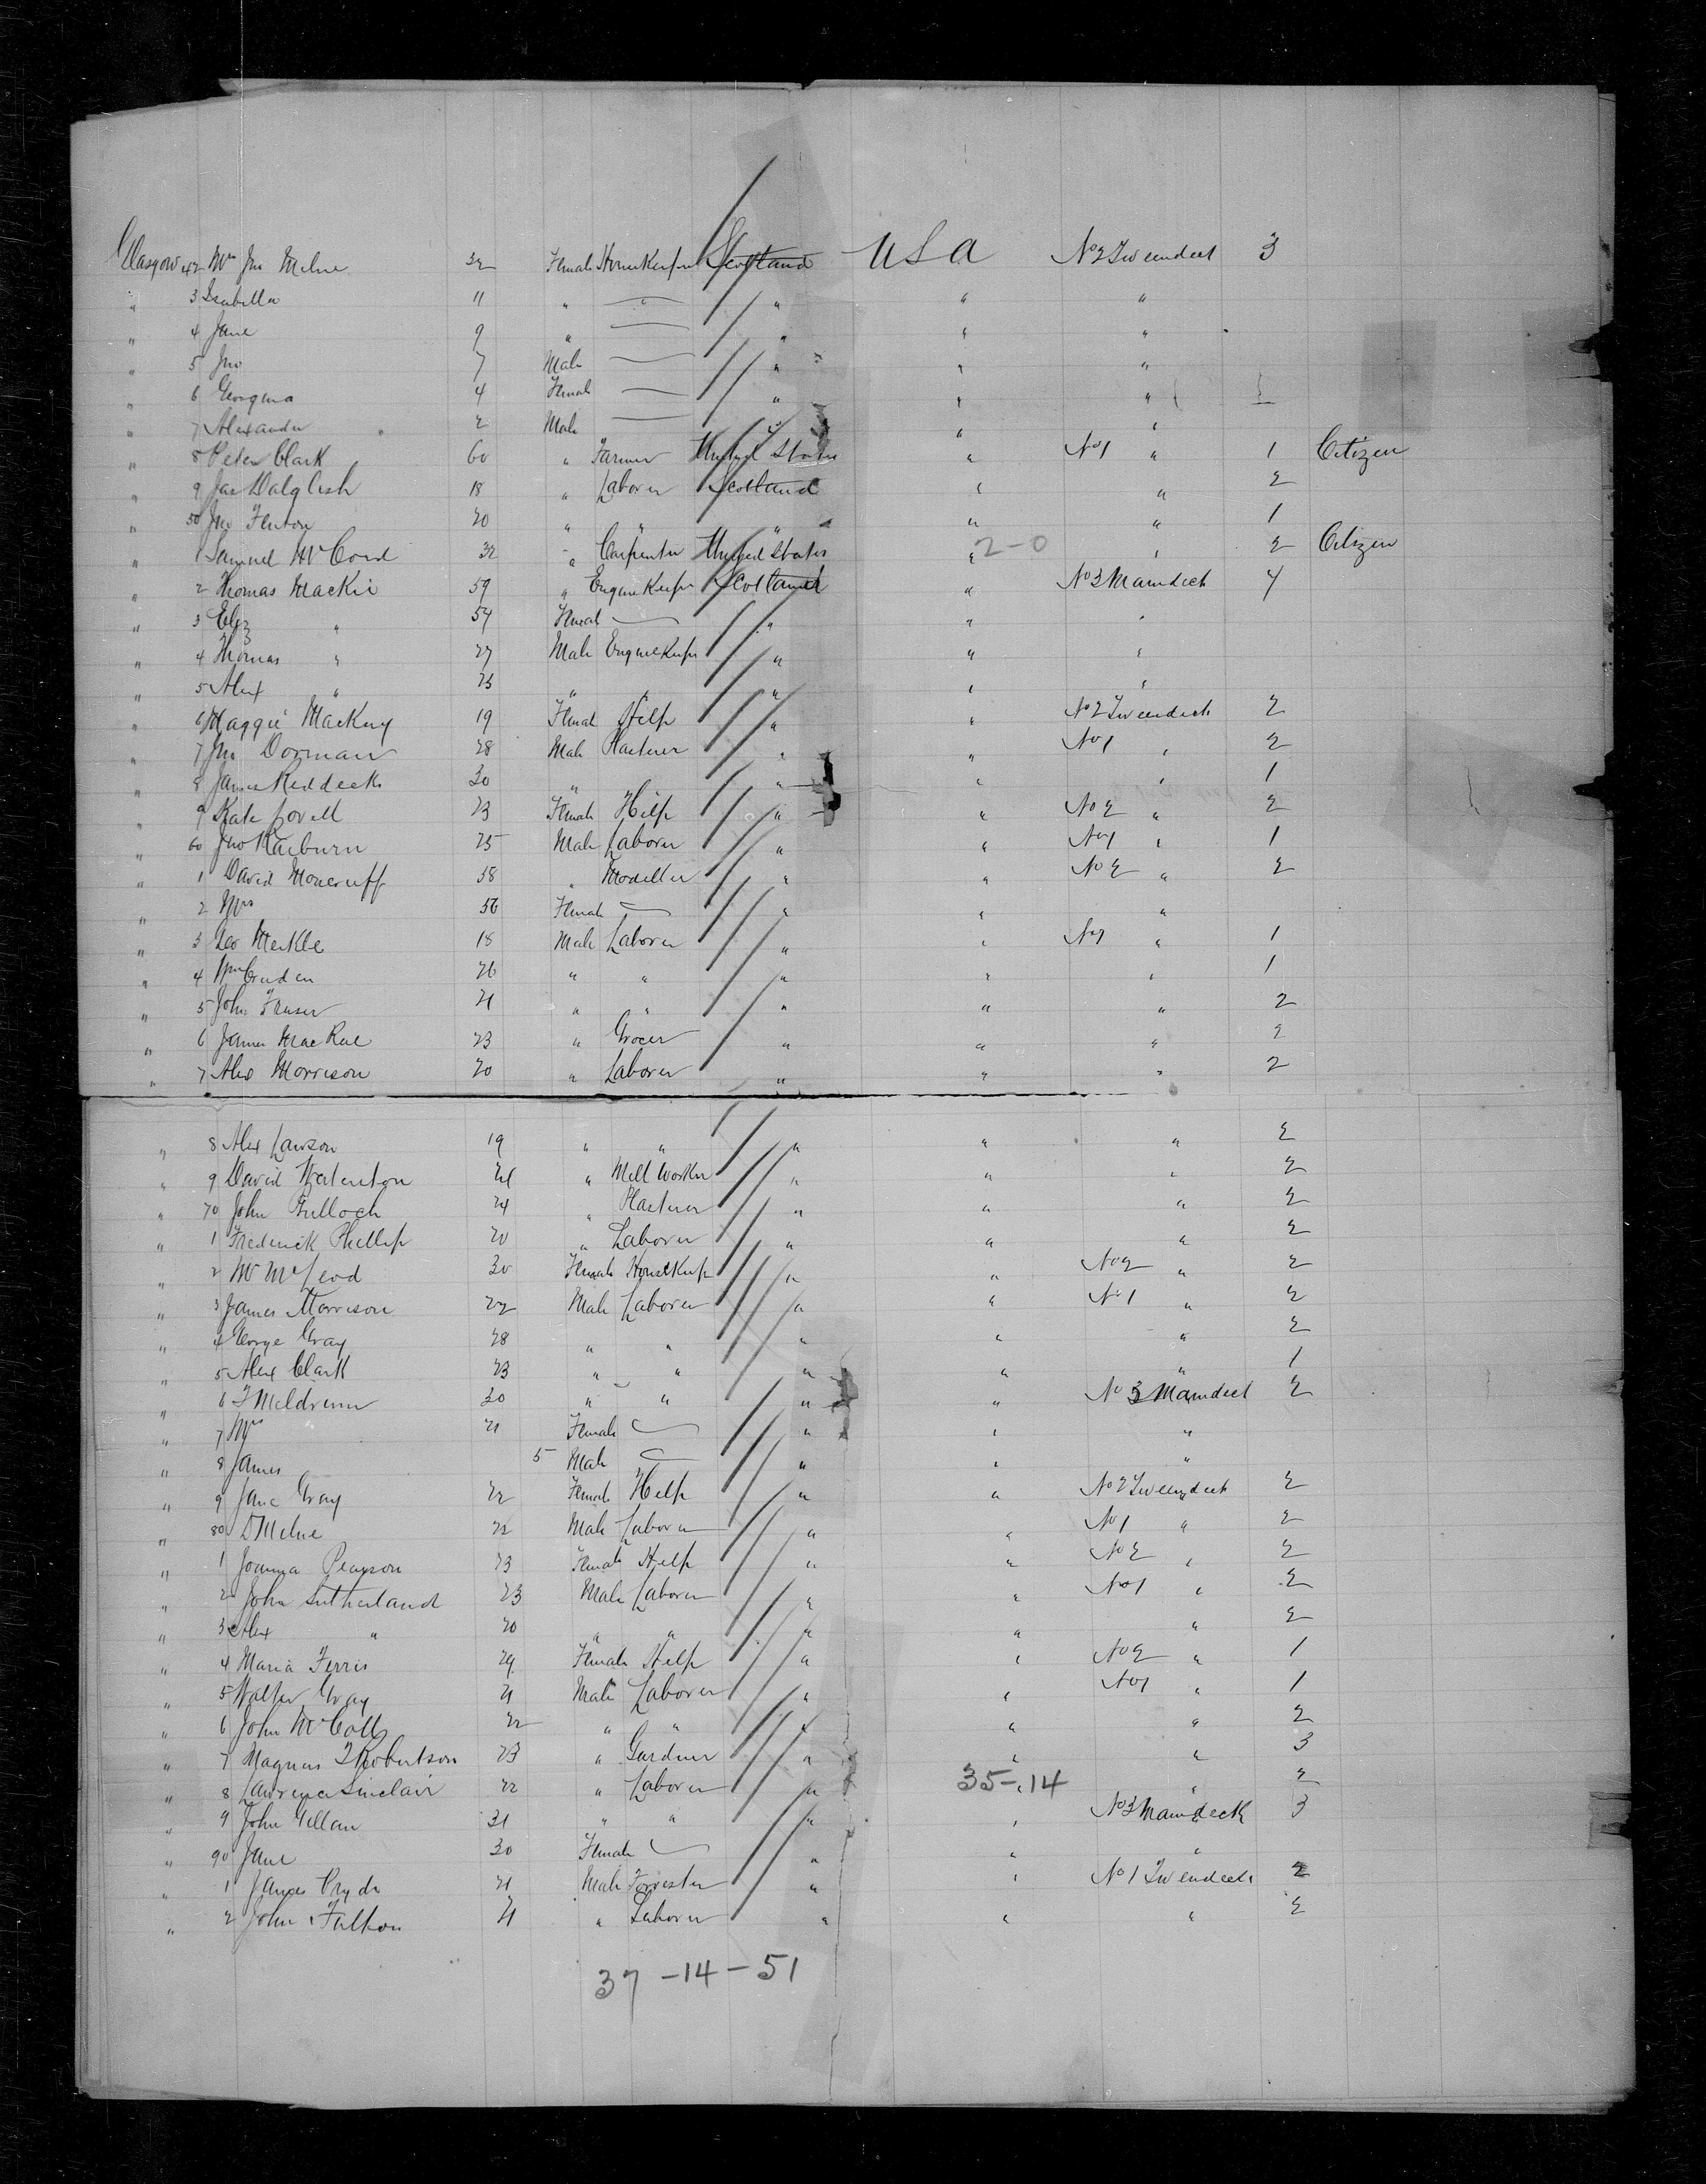 Glasgow 42 Mrs Jno Milne 32 Female HouseKeeper Scotland USA No 2 Tweendeck 3
" 3 Isabella 11 " " " " "
" 4 Jane 9 " " " "
" 5 Jno 7 Male " " "
" 6 Georgina 4 Female " " "
" 7 Alexander " 2 Male " " "
" 8 Peter Clark 60 " Farmer United States " No 1 " 1 Citizen
" 9 Jas Dalglish 18 " Laborer Scotland " " 2
" 50 Jno Fenton 20 " " " " " 1
" 1 Samuel McCord 32 " Carpenter United States " 2-0 " 2 Citizen
" 2 Thomas Mackie 59 " Engine Keeper Scotland " No 3 Maindeck 4
" 3 Eliz " 54 Female " " "
" 4 Thomas " 27 Male Engine Keeper " " "
" 5 Alex " 23 " " " " "
" 6 Maggie Mackay 19 Female Help " " No 2 Tweendeck 2
" 7 Jno Dorman 28 Male Plasterer " " No 1 " 2
" 8 James Reddeck 30 " " " " 1
" 9 Kate Lovell 23 Female Help " " No 2 " 2
" 60 Jno Raeburn 25 Male Laborer " " No 1 " 1
" 1 David Moncruff 58 " Modeller " " No 2 " 2
" 2 Mrs 56 Female " " "
" 3 Geo Meikle 18 Male Laborer " " No 1 " 1
" 4 Wm Cruden 26 " " " " " 1
" 5 John Fraser 21 " " " " " 2
" 6 James MacRae 23 " Grocer " " " 2
" 7 Alex Morrison 20 " Laborer " " " 2
" 8 Alex Lawson 19 " " " " " 2
" 9 David Waterston 21 " Mill Worker " " " 2
" 70 John Tulloch 24 " Plasterer " " " 2
" 1 Frederick Phillip 20 " Laborer " " " 2
" 2 McLeod 30 Female HouseKeep " " No 2 " 2
" 3 James Morrison 22 Male Laborer " " No 1 " 2
" 4 George Gray 28 " " " " " 2
" 5 Alex Clark 23 " " " " " 1
" 6 Meldrum 30 " " " " No 3 Maindeck 2
" 7 Mrs 21 Female " " "
" 8 James 5 Male " " "
" 9 Jane Gray 22 Female Help " " No 2 Tweendeck 2
" 80 D Milne 22 Male Laborer " " No 1 " 2
" 1 Joanna Pearson 23 Female Help " " No 2 " 2
" 2 John Sutherland 23 Male Laborer " " No 1 " 2
" 3 Alex " 20 " " " " " 2
" 4 Maria Ferris 29 Female Help " " No 2 " 1
" 5 Walter Gray 21 Male Laborer " " No 1 " 1
" 6 John McColl 22 " " " " " 2
" 7 Magnus Robertson 23 " Gardner " " " 3
" 8 Lawrence Sinclair 22 " Laborer " 35-14 " 2
" 9 John Gillan 31 " " " " No 3 Maindeck 3
" 90 Jane 30 Female " " "
" 1 James Pryde 21 Male Forrester " " No 1 Tweendeck 2
" 2 John Fulton 21 " Laborer " " " 2
37-14-51